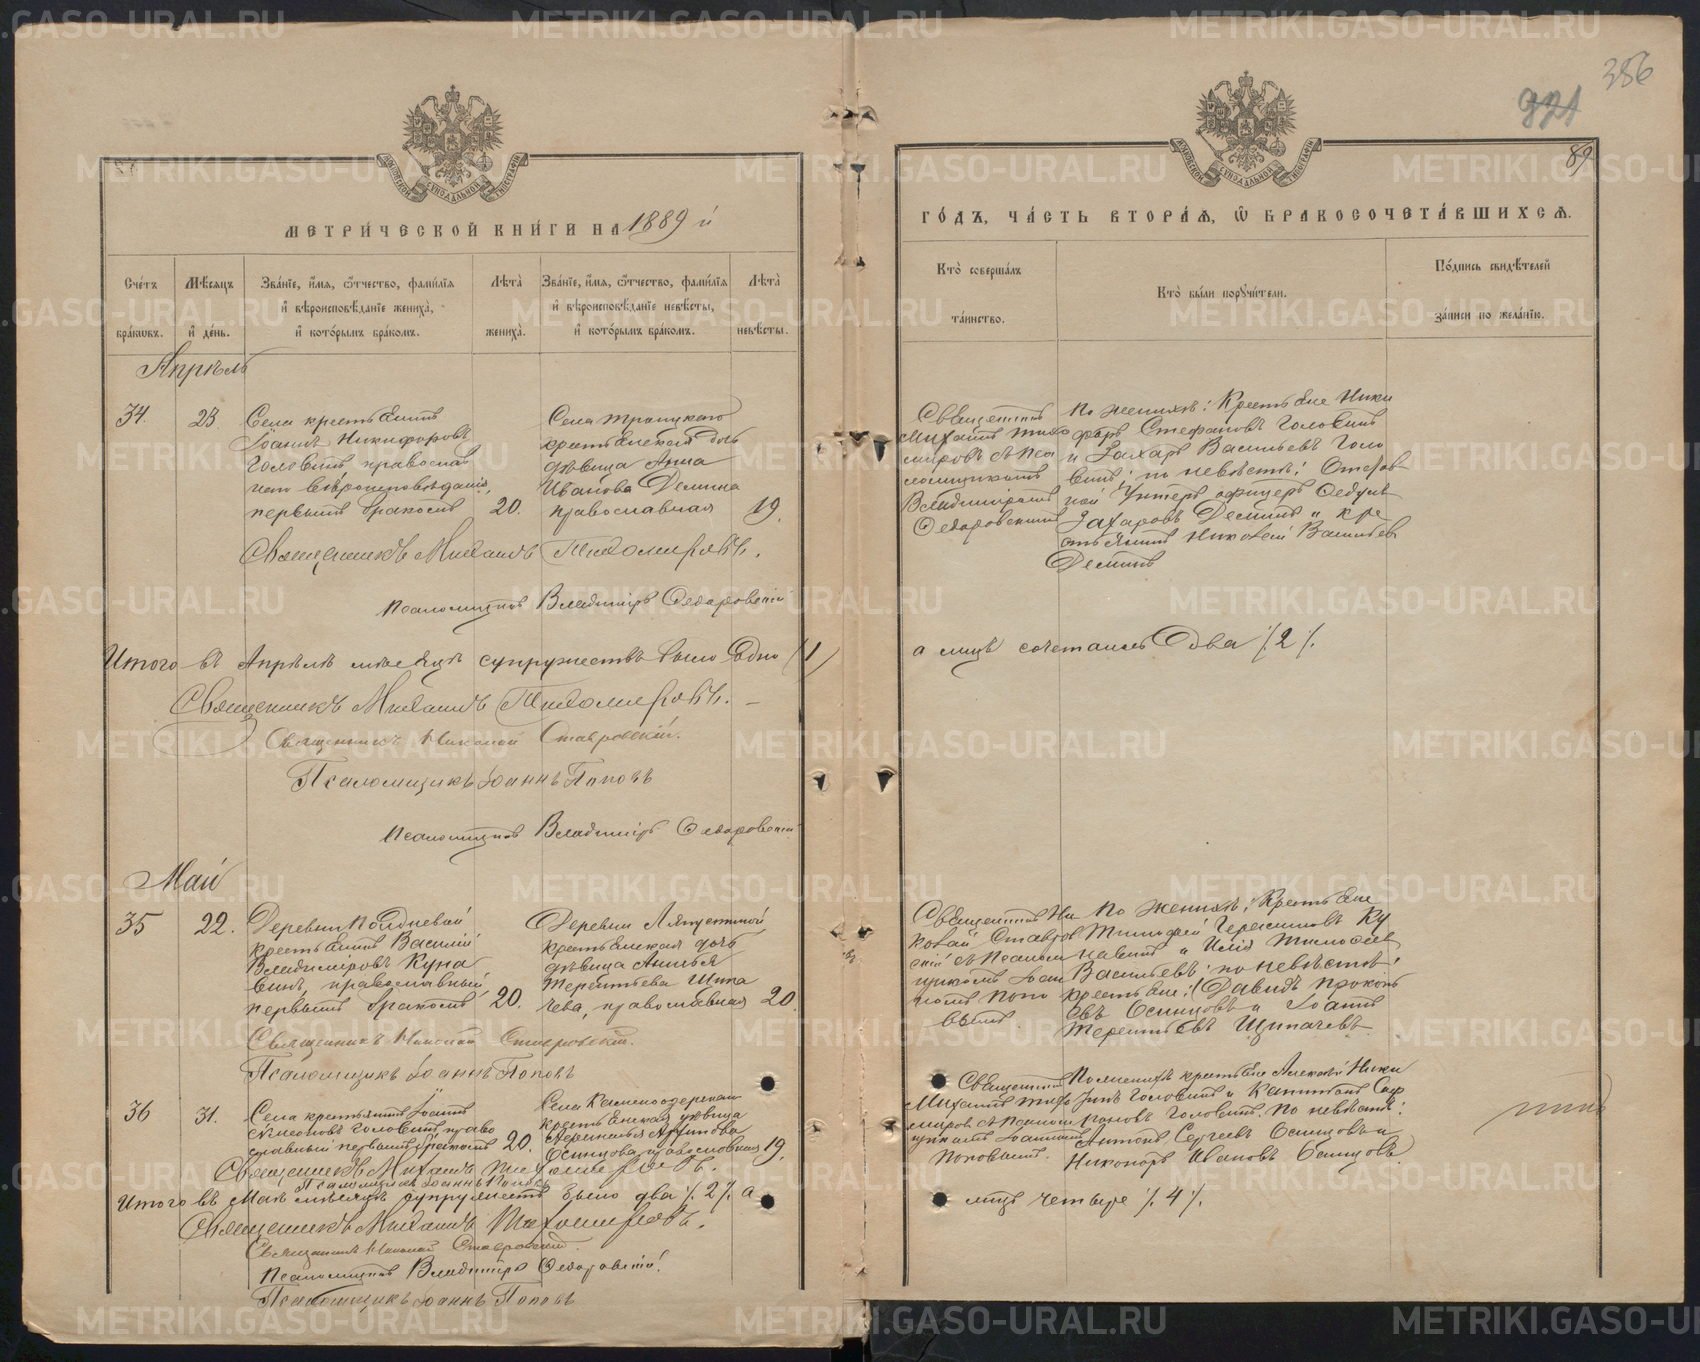 386
921
89
МЕТРИ́ЧЕСКОЙ КНИ́ГИ НА 1889 й
ГО́ДЪ, ЧА́СТЬ ВТОРА́Я, Ѿ БРАКОСОЧЕТА́ВШИХСЯ.
Сче́тъ бра́ковъ.
Мѣ́сяцъ и́ де́нь.
Зва́нїе, и́мя, ѻ́тчество, фами́лїя и́ вѣроисповѣ́данїе жениха̀, и́ кото́рымъ бра́комъ.
Лѣта̀ жениха̀.
Зва́нїе, и́мя, ѻ́тчество, фами́лїя и́ вѣроисповѣ́данїе невѣ́сты, и́ кото́рымъ бра́комъ.
Лѣта̀ невѣ́сты.
Кто̀ соверша́лъ та́инство.
Кто̀ бы́ли порꙋчи́тели.
По́дпись свидѣ́телей за́писи по жела́нїю.
Апрѣль
34.
23.
Села крестьянинъ
Іоаннъ Никифоровъ
Головинъ, православ
наго вѣроисповѣданія,
первымъ бракомъ
20.
Села Троицкаго
крестьянская дочь
дѣвица Анна
Иванова Демина
православная
19.
Священникъ
Михаилъ Тихо
мировъ съ Пса
ломщикомъ
Владиміромъ
Ѳедоровскимъ
По женихѣ: Крестьяне Ники
форъ Стефановъ Головинъ
и Захаръ Васильевъ Голо
винъ; по невѣстѣ: Отстав
ной Унтеръ офицеръ Ѳедулъ
Захаровъ Деминъ и кре
стьянинъ Николай Васильевъ
Деминъ
Священникъ Михаилъ Тихомировъ.
Псаломщикъ Владиміръ Ѳедоровскій
Итого въ Апрѣлѣ мѣсяцѣ супружествъ было Одно /1/
а лицъ сочеталось Два /.2/.
Священникъ Михаилъ Тихомировъ.
Священникъ Николай Ставровскій.
Псаломщикъ Іоаннъ Поповъ
Псаломщикъ Владиміръ Ѳедоровскій
Май
35
22.
Деревни Полдневой
крестьянинъ Василій
Владиміровъ Куна
винъ, православный
первымъ бракомъ
20.
Деревни
крестьянская дочь
дѣвица
Терентьева Щипа
чева, православная
20
Священникъ Ни
колай Ставров
скій съ Псалом
щикомъ Іоан
номъ Попо
вымъ.
По женихѣ: Крестьяне
Тимофей Герасимовъ Ку
навинъ и Илія
Васильевъ; по невѣстѣ:
крестьяне: Давидъ Прокопь
евъ Осинцовъ и Іоаннъ
Терентьевъ Щипачевъ
Священникъ Николай Ставровскій.
Псаломщикъ Іоаннъ Поповъ
36
31.
Села крестьянинъ Іоаннъ
Сѵмеоновъ Головинъ, право
славный первымъ бракомъ
20.
Села Каменноозерскаго
крестьянская дѣвица
Осинцова, православная
19.
Священникъ
Михаилъ Тихо
мировъ съ Псалом
щикомъ Іоанномъ
Поповымъ.
По женихѣ крестьяне Алексѣй Ники
тинъ Головинъ и
Головинъ: по невѣстѣ:
Антонъ Сергѣевъ Осинцовъ и
Никаноръ Ивановъ Осинцовъ
Священникъ Михаилъ Тихомировъ.
Псаломщикъ Іоаннъ Поповъ
Итого въ Маѣ мѣсяцѣ супружествъ было два /.2/. а
лицъ четыре /.4/.
Священникъ Михаилъ Тихомировъ.
Священникъ Николай Ставровскій.
Псаломщикъ Владиміръ Ѳедоровскій.
Псаломщикъ Іоаннъ Поповъ
METRIKI.GASO-URAL.RU